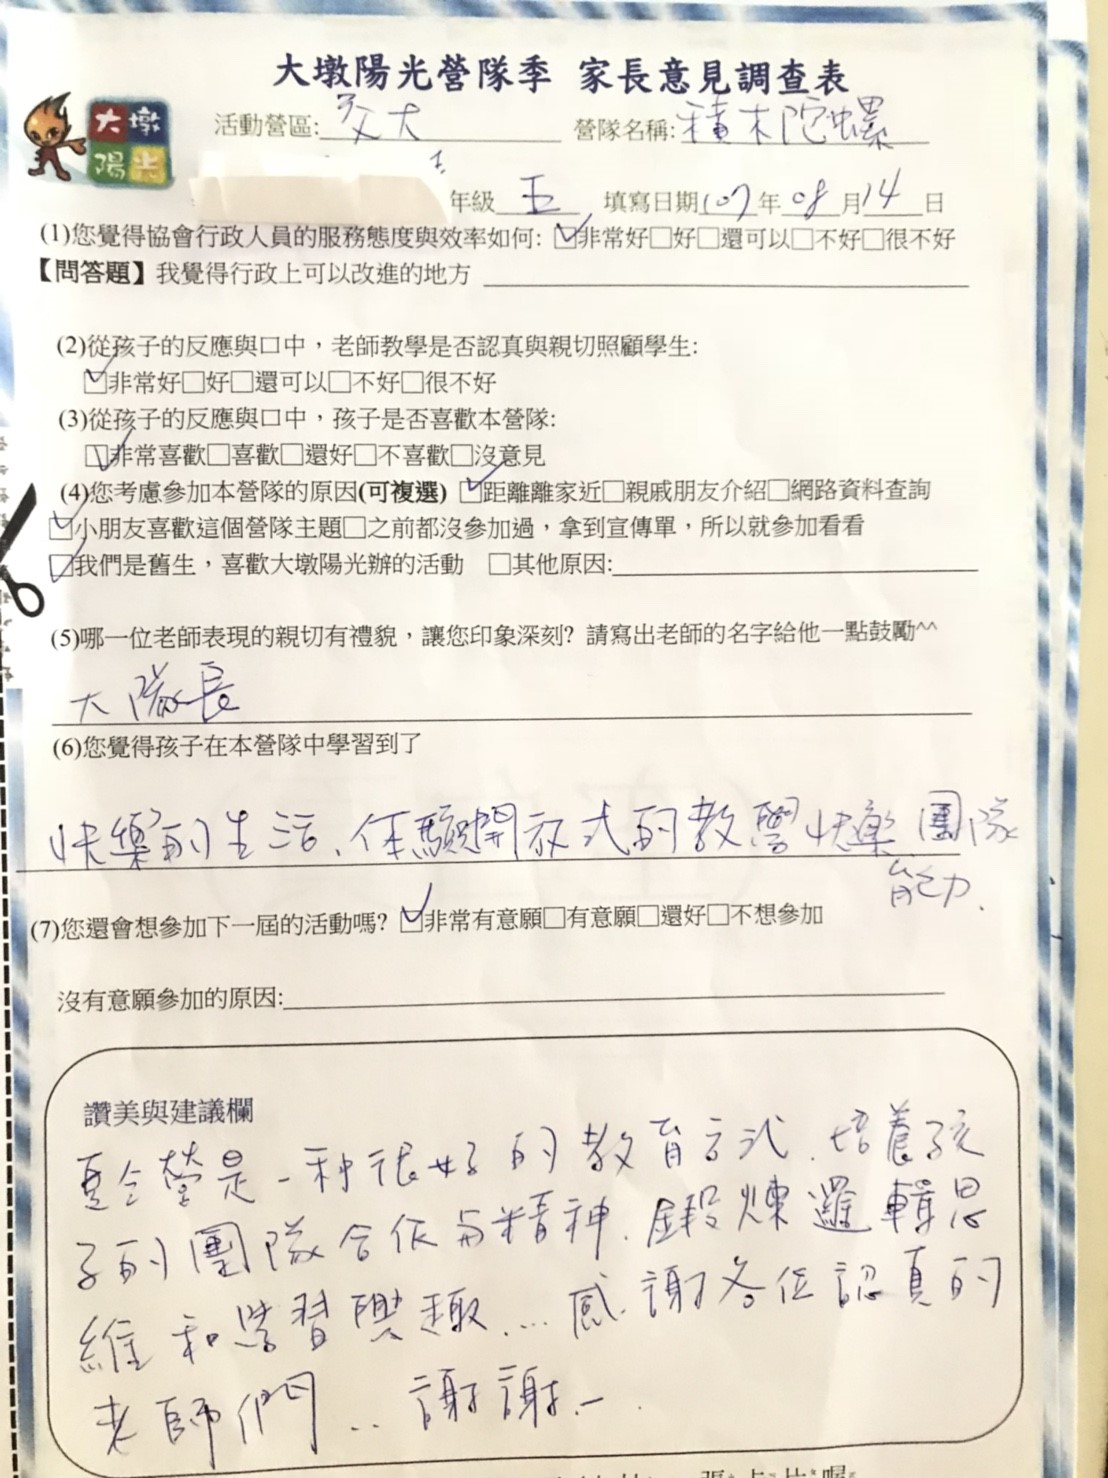 大墩陽光營隊季 家長意見調查表
大墩
陽光
活動營區:交大 營隊名稱:積木陀螺
年級五 填寫日期107年08月14日
(1)您覺得協會行政人員的服務態度與效率如何:☑非常好□好□還可以□不好□很不好
【問答題】我覺得行政上可以改進的地方
(2)從孩子的反應與口中，老師教學是否認真與親切照顧學生:
☑非常好□好□還可以□不好□很不好
(3)從孩子的反應與口中，孩子是否喜歡本營隊:
☑非常喜歡□喜歡□還好□不喜歡□沒意見
(4)您考慮參加本營隊的原因(可複選) ☑距離離家近□親戚朋友介紹□網路資料查詢
☑小朋友喜歡這個營隊主題□之前都沒參加過，拿到宣傳單，所以就參加看看
☑我們是舊生，喜歡大墩陽光辦的活動 □其他原因:
(5)哪一位老師表現的親切有禮貌，讓您印象深刻? 請寫出老師的名字給他一點鼓勵^^
大隊長
(6)您覺得孩子在本營隊中學習到了
快樂的生活、体驗開放式的教學快樂團隊
能力.
(7)您還會想參加下一屆的活動嗎? ☑非常有意願□有意願□還好□不想參加
沒有意願參加的原因:
讚美與建議欄
夏令營是一种很好的教育方式.培養孩
子的團隊合作与精神.鍛煉邏輯思
維和學習興趣....感謝各位認真的
老師們...謝謝.
張卡片喔